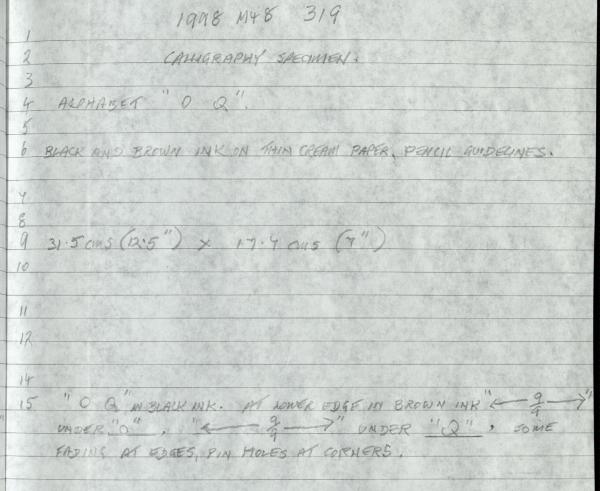 1998 M48 319
1
2 CALLIGRAPHY SPECIMEN.
3
4 ALPHABET "O Q".
5
6 BLACK AND BROWN INK ON THIN CREAM PAPER, PENCIL GUIDELINES.
7
8
9 31.5 cms (12.5") x 17.7 cms (7")
10
11
12
14
15 "O Q" IN BLACK INK. AT LOWER EDGE IN BROWN INK "← 9/9 →"
UNDER "O", "← 9/9 →" UNDER "Q", SOME
FADING AT EDGES, PIN HOLES AT CORNERS.